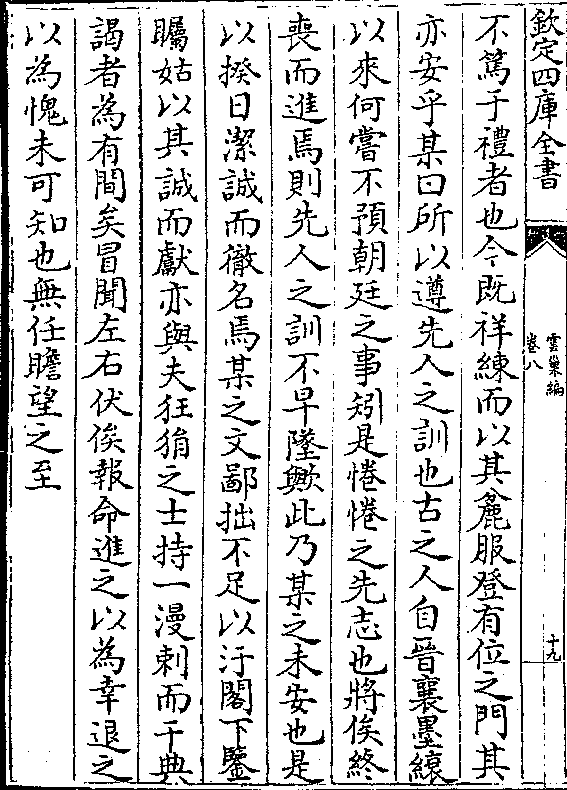 欽定四庫全書
雲巢編
卷八
十九
不篤于禮者也今既祥練而以其麄服登有位之門其
亦安乎某曰所以遵先人之訓也古之人自晉襄墨縗
以來何嘗不預朝廷之事矧是惓惓之先志也將俟終
喪而進焉則先人之訓不早墜歟此乃某之未安也是
以揆日潔誠而徹名焉某之文鄙拙不足以汙閣下鑒
矚姑以其誠而獻亦與夫狂狷之士持一漫刺而干典
謁者為有間矣冒聞左右伏俟報命進之以為幸退之
以為愧未可知也無任瞻望之至